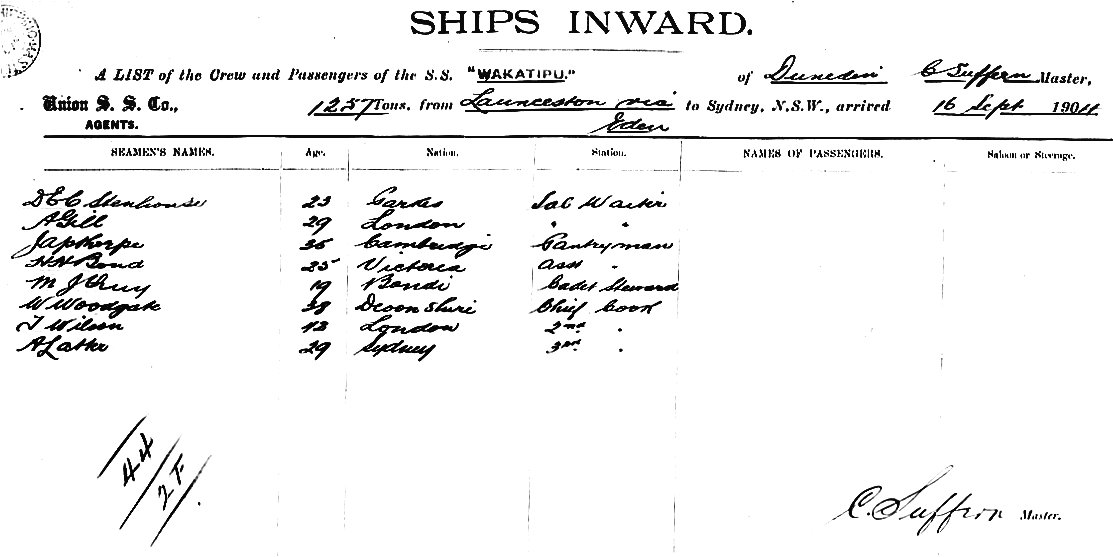 SHIPS INWARD.
A LIST of the Crew and Passengers of the S.S. "WAKATIPU." of Dunedin C Suffern Master,
Union S. S. Co., 1257 Tons, from Launceston via to Sydney, N.S.W., arrived 16 Sept 1904
AGENTS. Eden
SEAMEN'S NAMES. Age. Nation. Station. NAMES OF PASSENGERS. Saloon or Steerage.
D E C Stenhouse 23 Sal Waiter
A Gill 29 London " "
J Apthorpe 35 Cambridge Pantryman
H H Bond 25 Victoria Asst "
M J Guy 19 Bondi Cadet Steward
W Woodgate 38 Devonshire Chief Cook
T Wilson 43 London 2nd "
A Latter 29 Sydney 3rd "
44
2 F.
C. Suffern Master.